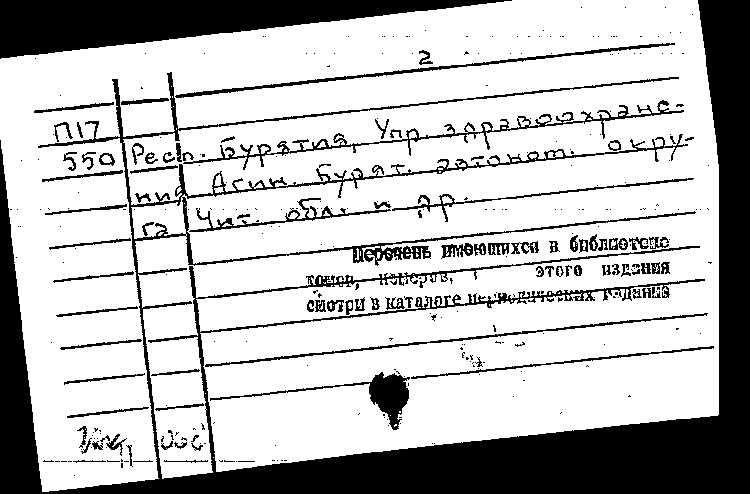 2
П17
550 Респ. Бурятия, Упр. здравоохране-
ния Агин. Бурят. автоном. окру-
га Чит. обл. и др.
Перечень имеющихся в библиотеке
томов, номеров, этого издания
смотри в каталоге периодических издания